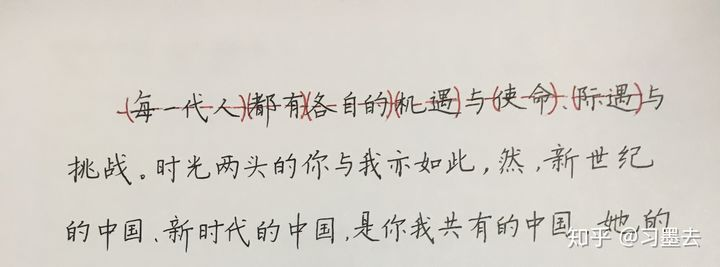 每一代人都有各自的机遇与使命、际遇与
挑战。时光两头的你与我亦如此,然,新世纪
的中国、新时代的中国,是你我共有的中国。她,的
知乎 @习墨去